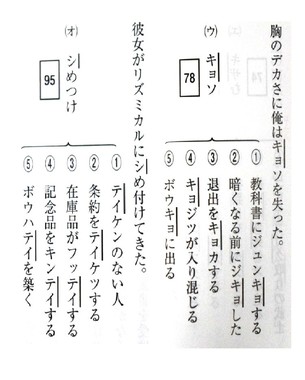 胸のデカさに俺はキョソを失った。
(ウ) キョソ
78
① 教科書にジュンキョする
② 暗くなる前にジキョした
③ 退出をキョカする
④ キョジツが入り混じる
⑤ ボウキョに出る
彼女がリズミカルにシめ付けてきた。
(オ) シめつけ
95
① テイケンのない人
② 条約をテイケツする
③ 在庫品がフッテイする
④ 記念品をキンテイする
⑤ ボウハテイを築く